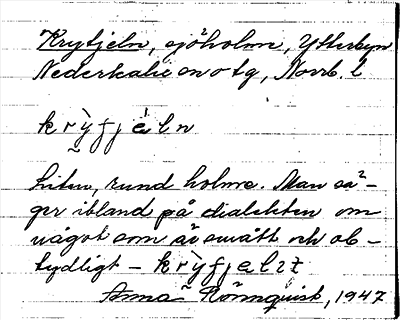 Krytjeln, sjöholme, Ytterbyn
Nederkalix en o tg, Norrb. l
krỳfjeln
Liten, rund holme. Man sä-
ger ibland på dialekten om
något som är smått och ob-
tydligt – krỳfjelzt
Anna Rönnquist, 1947